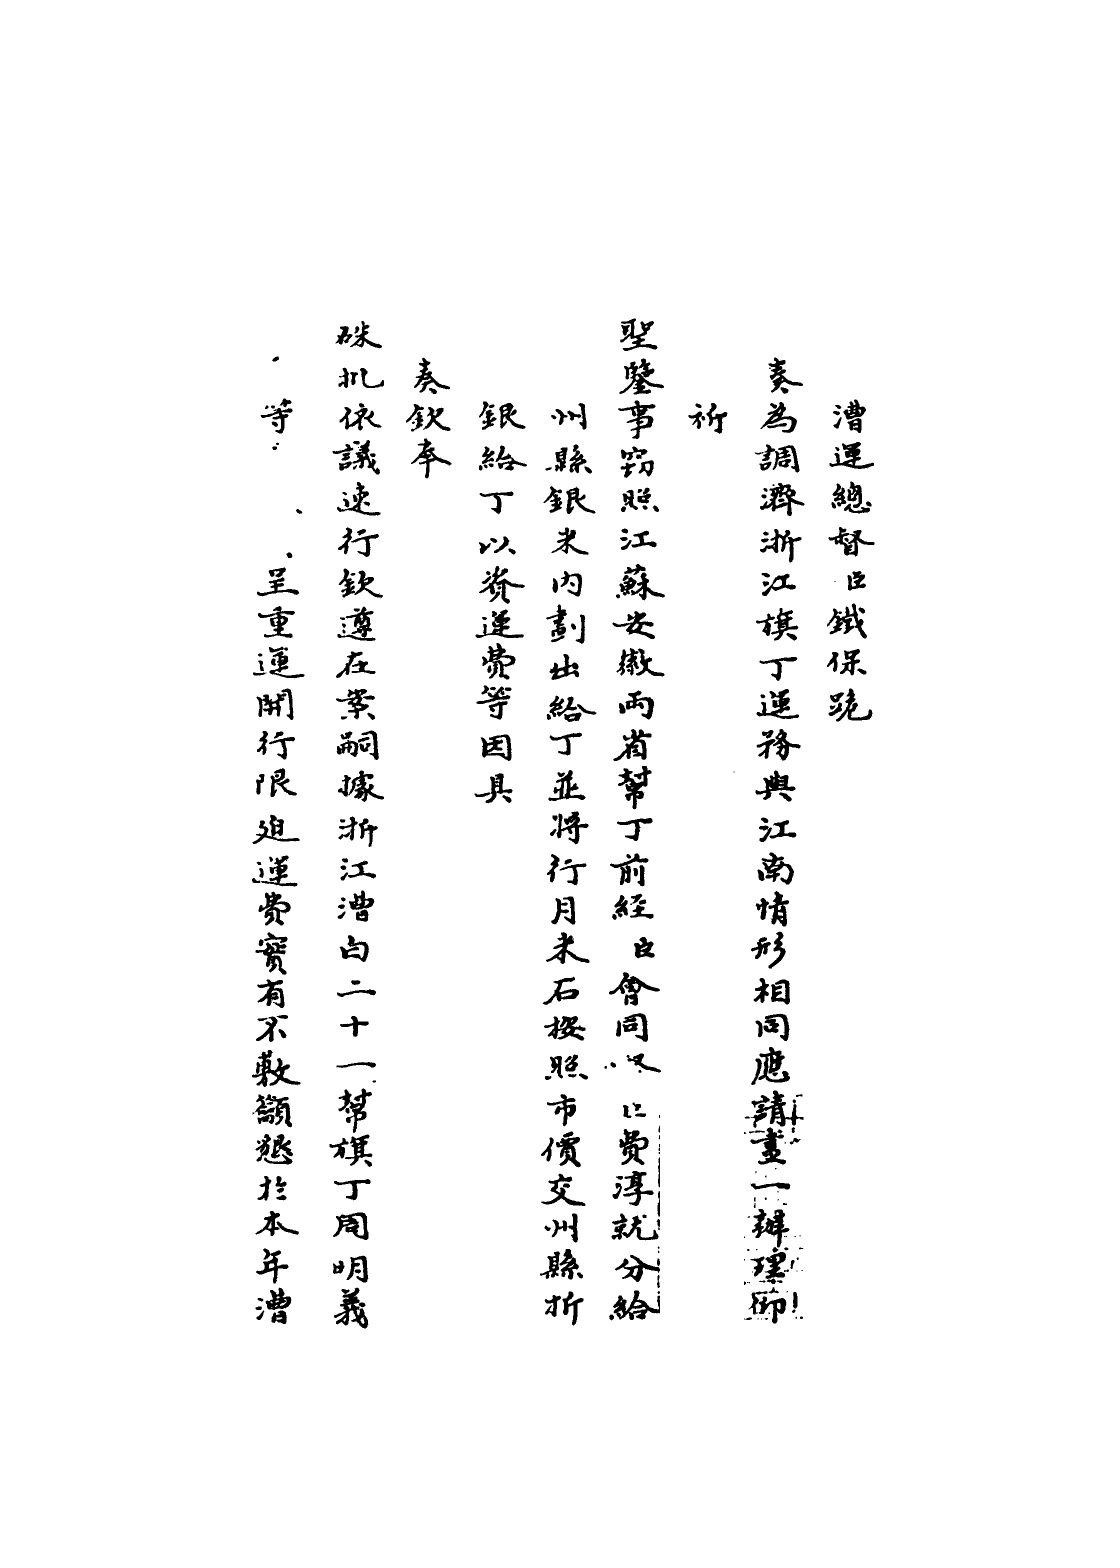 漕運總督臣鐵保跪
奏為調濟浙江旗丁運務與江南情形相同應請畫一辦理仰
祈
聖鑒事竊照江蘇安徽兩省幫丁前經臣會同費淳就分給
州縣銀米內劃出給丁並將行月米石按照市價交州縣折
銀給丁以資運費等因具
奏欽奉
硃批依議速行欽遵在案嗣據浙江漕白二十一幫旗丁周明義
等呈重運開行限迫運費實有不敷籲懇於本年漕